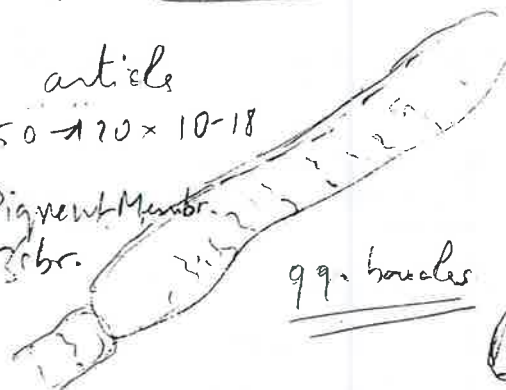 article
50 → 120 × 10-18
Pigment Membr.
zébr.
qq. boucles